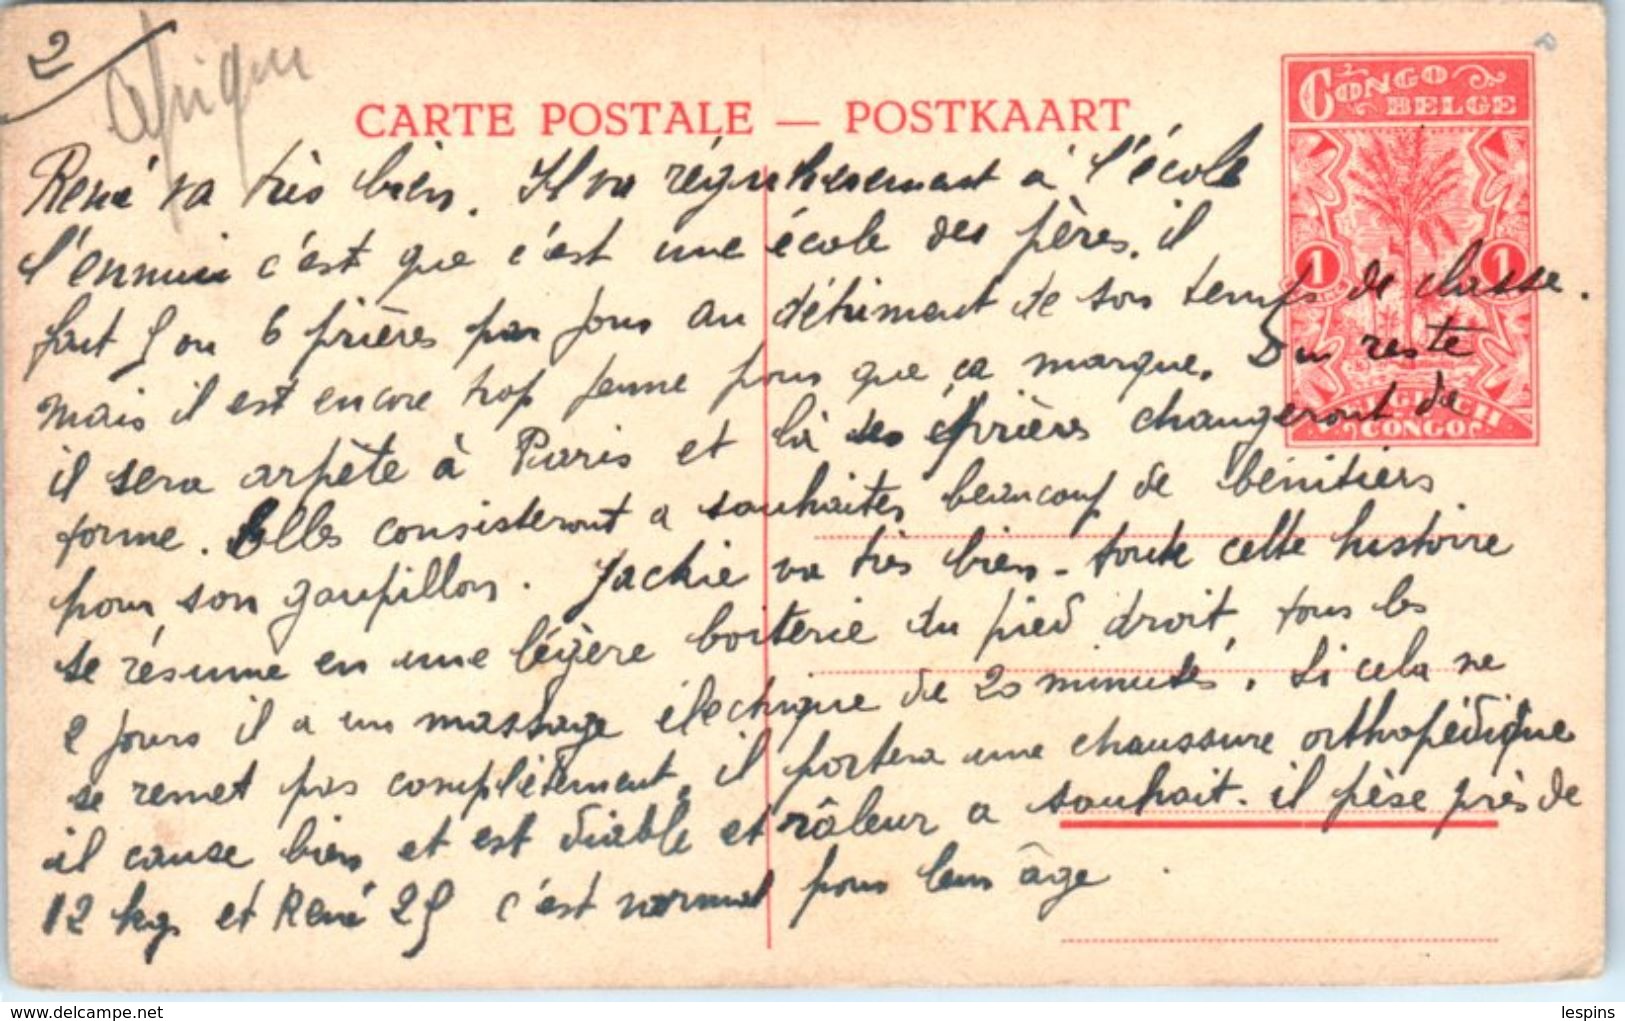 2
Afrique
CARTE POSTALE — POSTKAART
CONGO
BELGE
1 1
BELGISCH
CONGO
René va très bien. Il va régulièrement à l'école
l'ennui c'est que c'est une école des pères. il
fait 5 ou 6 prières par jour au détriment de son temps de classe.
mais il est encore trop jeune pour que ça marque. Du reste
il sera arpète à Paris et là les prières changeront de
forme. Elles consisteront a souhaiter beaucoup de bénitiers
pour son goupillon. Jackie va très bien - toute cette histoire
se résume en une légère boiterie du pied droit, tous les
2 jours il a un massage électrique de 20 minutes. Si cela ne
se remet pas complètement, il portera une chaussure orthopédique
il cause bien et est diable et râleur a souhait. il pèse près de
12 kgs et René 25 c'est normal pour leur âge.
https://www.delcampe.net
lespins